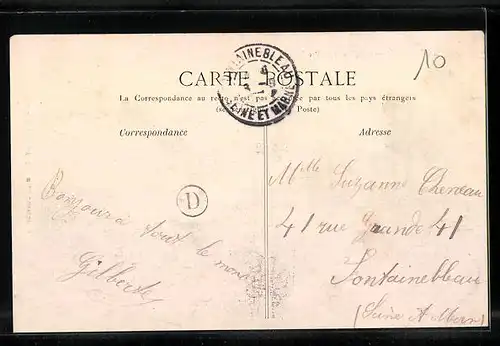 10
FONTAINEBLEAU
SEINE ET MARNE
CARTE POSTALE
La Correspondance au recto n'est pas par tous les pays étrangers
Poste)
Correspondance
Adresse
D
Bonjour à
tout le mon
Gilberte
Mlle Suzanne Cheneau
41 rue Grande 41
Fontainebleau
(Seine et Marn)